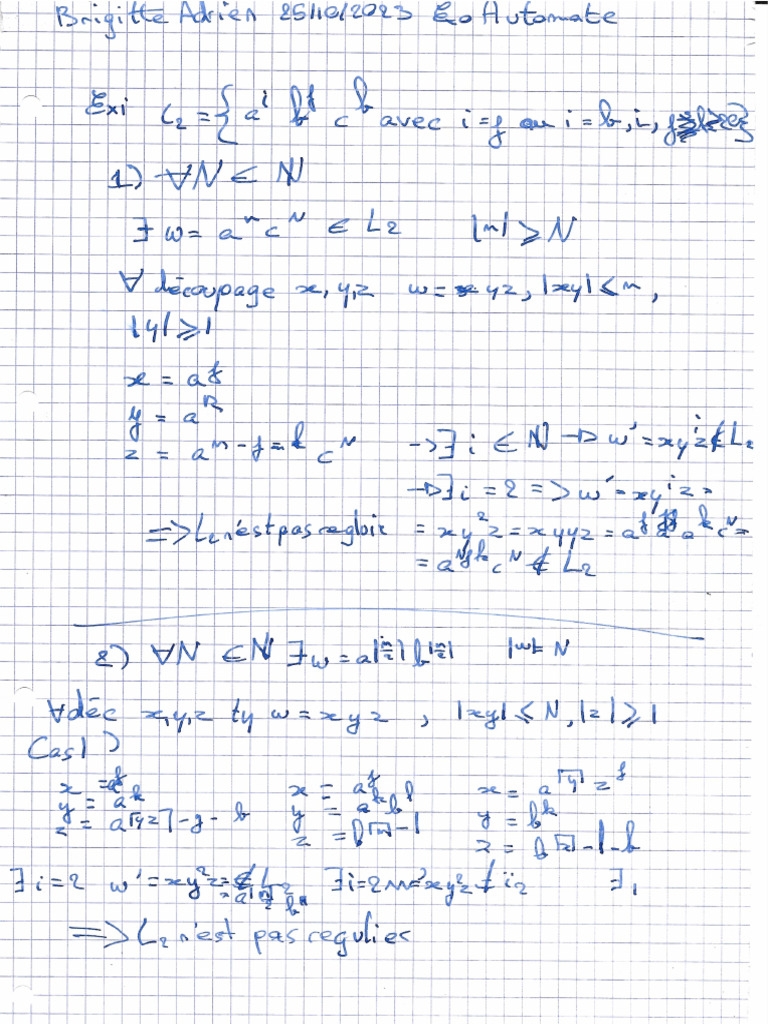 Brigitte Adrien 25/10/2023 Exo Automate
Exi L₂ = { aⁱ bᶠ cᵇ avec i = f ou i = b, i,
1) ∀N ∈ ℕ
∃ w = aⁿ cᴺ ∈ L₂ |n| ⩾ N
∀ découpage x, y, z w = xyz, |xy| ≤ n,
|y| ⩾ 1
x = aᶠ
y = aᵏ
z = aⁿ⁻ᶠ⁼ᵏ cᴺ → ∃ i ∈ ℕ → w' = xyⁱz ∉ L₂
→ ∃ i = 2 => w' = xyⁱz =
=> L₂ n'est pas regloir = xy²z = xyyz = aᶠ aᵏ aᵏ cᴺ =
cᴺ ∉ L₂
2) ∀N ∈ ℕ ∃ w = a|n/2| b|n/2| |w| = N
∀ déc x, y, z tq w = xyz, |xy| ≤ N, |z| ⩾ 1
Cas 1)
x = aᶠ x = aᶠ x =
y = aᵏ y = aᵏ bˡ y = bᵏ
z = z = z =
∃ i = 2 w' = xy²z = ∉ L₂ ∃ i = 2 xy²z ∃ 1
=> L₂ n'est pas regulier